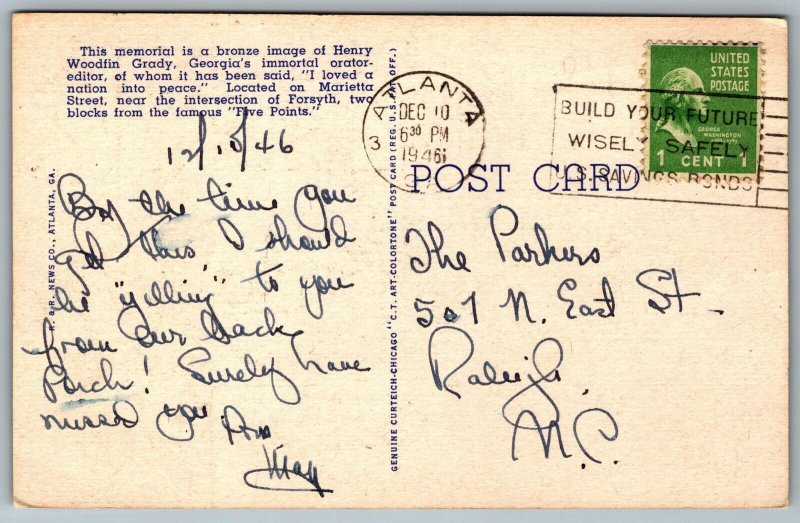 This memorial is a bronze image of Henry
Woodfin Grady, Georgia's immortal orator-
editor, of whom it has been said, "I loved a
nation into peace." Located on Marietta
Street, near the intersection of Forsyth, two
blocks from the famous "Five Points."
12/10/46
By the time you
get this, I should
be "yelling" to you
from our back
Porch! Surely have
missed you.
May
R. & R. NEWS CO., ATLANTA, GA.
GENUINE CURTEICH-CHICAGO "C.T. ART-COLORTONE" POST CARD (REG. U.S. PAT. OFF.)
ATLANTA
3
DEC 10
6 30 PM
1946
BUILD YOUR FUTURE
WISELY SAFELY
U.S. SAVINGS BONDS
UNITED
STATES
POSTAGE
GEORGE
WASHINGTON
1 CENT 1
POST CARD
The Parkers
507 N. East St.
Raleigh
N.C.